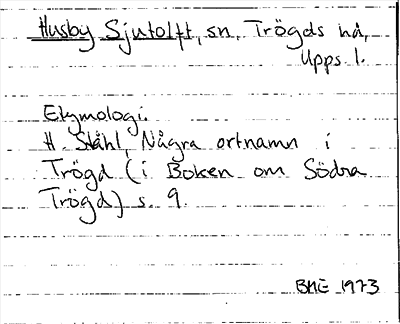 Husby Sjutolft, sn, Trögds hd,
Upps l.
Etymologi.
H. Ståhl, Några ortnamn i
Trögd (i Boken om Södra
Trögd) s. 9.
BME 1973